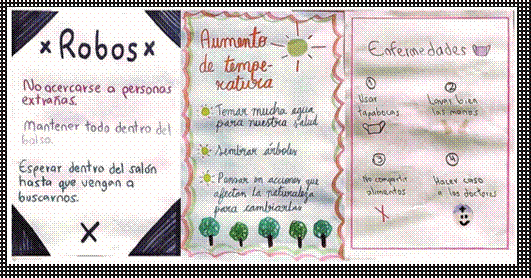 x Robos x
No acercarse a personas
extrañas.
Mantener todo dentro del
bolso.
Esperar dentro del salón
hasta que vengan a
buscarnos.
Aumento
de tempe-
ratura
Tomar mucha agua
para nuestra salud
Sembrar árboles
Pensar en acciones que
afectan la naturaleza
para cambiarlas
Enfermedades
1
Usar
tapabocas
2
Lavar bien
las manos
3
No compartir
alimentos
4
Hacer caso
a los doctores